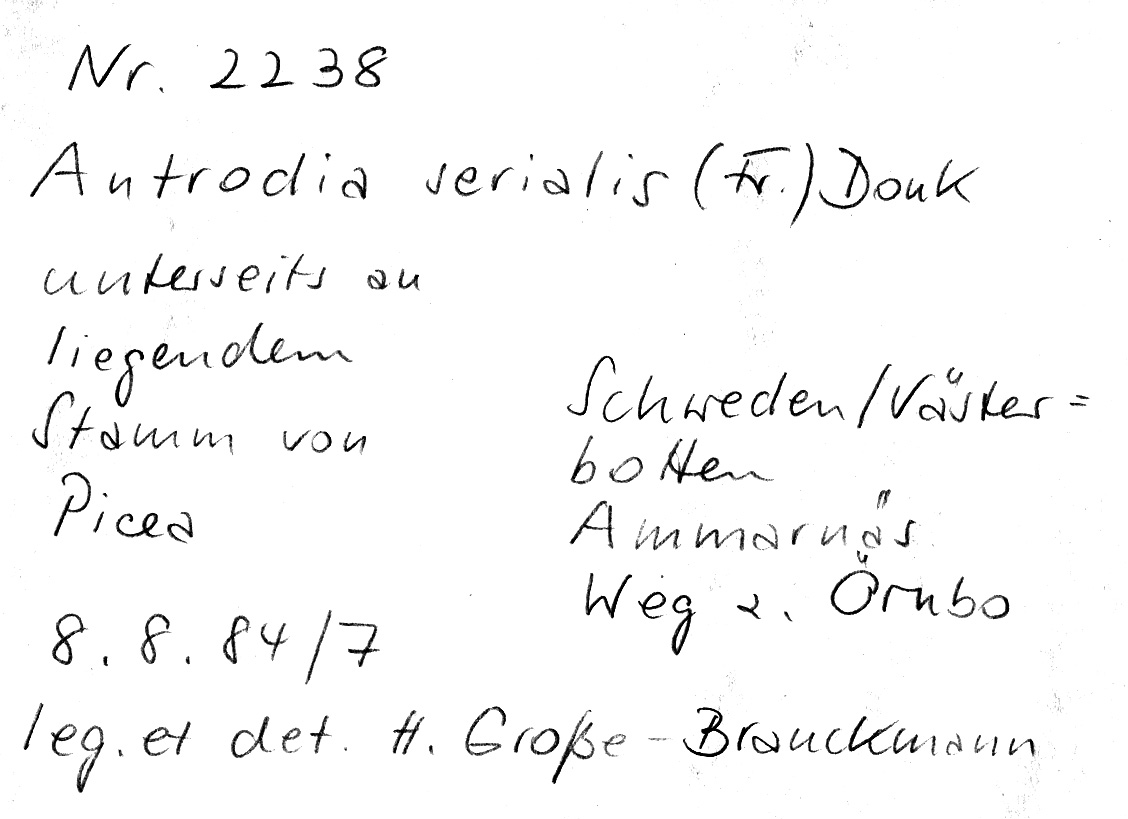 Nr. 2238
Antrodia serialis (Fr.) Donk
unterseits an
liegendem
Stamm von
Picea
Schweden/Väster=
botten
Ammarnäs
Weg z. Örnbo
8. 8. 84/7
leg. et det. H. Große-Brauckmann